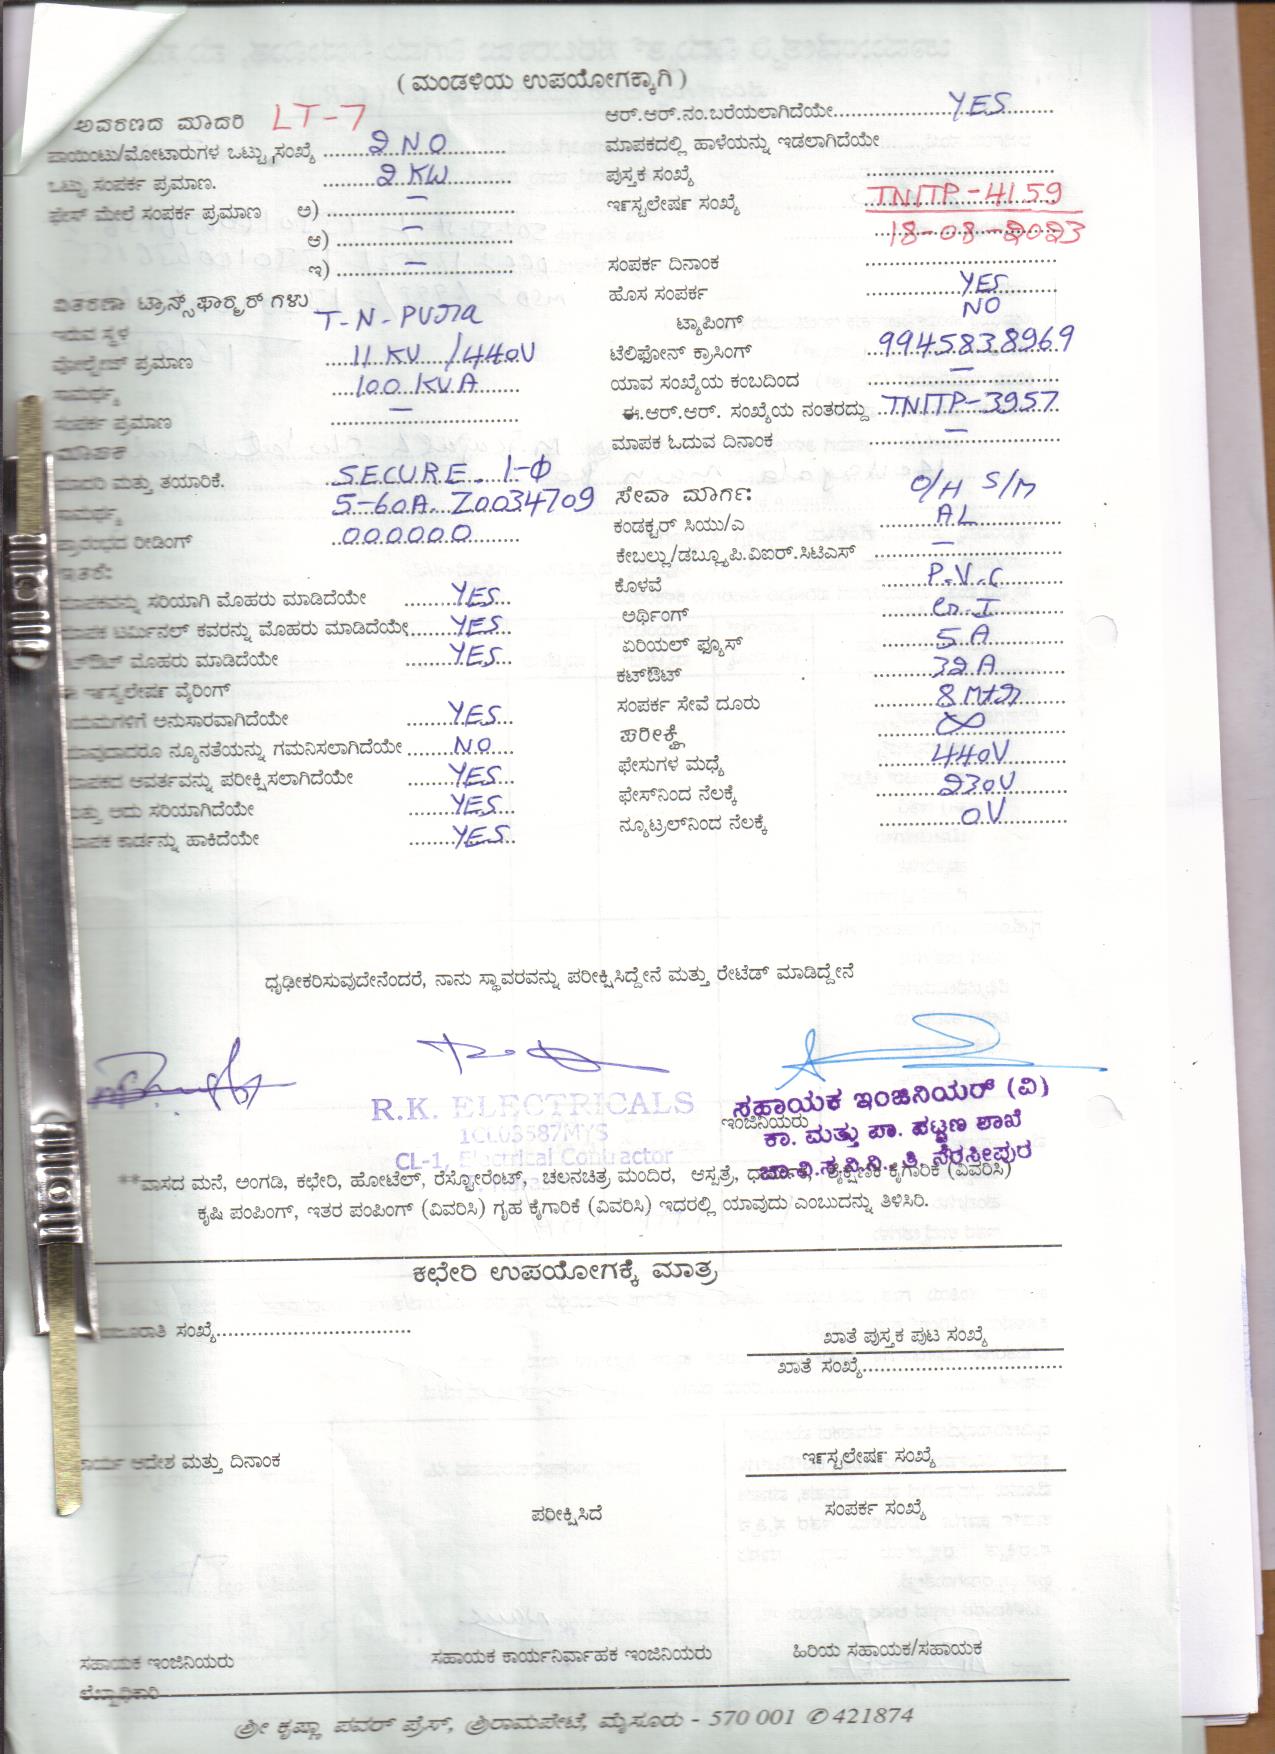 ( ಮಂಡಳಿಯ ಉಪಯೋಗಕ್ಕಾಗಿ )
ಆವರಣದ ಮಾದರಿ LT-7
ಪಾಯಿಂಟು/ಮೋಟಾರುಗಳ ಒಟ್ಟು ಸಂಖ್ಯೆ ........2 NO........
ಒಟ್ಟು ಸಂಪರ್ಕ ಪ್ರಮಾಣ. ........2 KW........
ಫೇಸ್ ಮೇಲೆ ಸಂಪರ್ಕ ಪ್ರಮಾಣ ಅ) ........—........
ಆ) ........—........
ಇ) ........—........
ವಿತರಣಾ ಟ್ರಾನ್ಸ್‌ಫಾರ್ಮರ್ ಗಳು
ಇರುವ ಸ್ಥಳ T-N-PURA
ವೋಲ್ಟೇಜ್ ಪ್ರಮಾಣ 11 KV / 440V
ಸಾಮರ್ಥ್ಯ 100 KVA
ಸಂಪರ್ಕ ಪ್ರಮಾಣ ........—........
ಮಾಪಕ
ಮಾದರಿ ಮತ್ತು ತಯಾರಿಕೆ. SECURE. 1-Φ
ಸಾಮರ್ಥ್ಯ 5-60A. Z0034709
ಪ್ರಾರಂಭದ ರೀಡಿಂಗ್ 000000
ಇತರೆ:
ಮಾಪಕವನ್ನು ಸರಿಯಾಗಿ ಮೊಹರು ಮಾಡಿದೆಯೇ ........YES...
ಮಾಪಕ ಟರ್ಮಿನಲ್ ಕವರನ್ನು ಮೊಹರು ಮಾಡಿದೆಯೇ........YES...
ಕಟ್‌ಔಟ್ ಮೊಹರು ಮಾಡಿದೆಯೇ ........YES...
ಈ ಇನ್‌ಸ್ಟಲೇಷನ್ ವೈರಿಂಗ್
ನಿಯಮಗಳಿಗೆ ಅನುಸಾರವಾಗಿದೆಯೇ ........YES...
ಯಾವುದಾದರೂ ನ್ಯೂನತೆಯನ್ನು ಗಮನಿಸಲಾಗಿದೆಯೇ ........NO...
ಮಾಪಕದ ಆವರ್ತವನ್ನು ಪರೀಕ್ಷಿಸಲಾಗಿದೆಯೇ ........YES...
ಮತ್ತು ಅದು ಸರಿಯಾಗಿದೆಯೇ ........YES...
ಮಾಪಕ ಕಾರ್ಡನ್ನು ಹಾಕಿದೆಯೇ ........YES...
ಆರ್.ಆರ್.ನಂ.ಬರೆಯಲಾಗಿದೆಯೇ........YES........
ಮಾಪಕದಲ್ಲಿ ಹಾಳೆಯನ್ನು ಇಡಲಾಗಿದೆಯೇ
ಪುಸ್ತಕ ಸಂಖ್ಯೆ ................
ಇನ್‌ಸ್ಟಲೇಷನ್ ಸಂಖ್ಯೆ TNITP-4159
18-08-2023
ಸಂಪರ್ಕ ದಿನಾಂಕ ................
ಹೊಸ ಸಂಪರ್ಕ YES
ಟ್ಯಾಪಿಂಗ್ NO
ಟೆಲಿಫೋನ್ ಕ್ರಾಸಿಂಗ್ 9945838969
ಯಾವ ಸಂಖ್ಯೆಯ ಕಂಬದಿಂದ ........—........
ಈ.ಆರ್.ಆರ್. ಸಂಖ್ಯೆಯ ನಂತರದ್ದು TNITP-3957
ಮಾಪಕ ಓದುವ ದಿನಾಂಕ ........—........
ಸೇವಾ ಮಾರ್ಗ: O/H S/M
ಕಂಡಕ್ಟರ್ ಸಿಯು/ಎ AL
ಕೇಬಲ್ಲು/ಡಬ್ಲ್ಯೂಪಿ.ವಿಐಆರ್.ಸಿಟಿಎಸ್ ........—........
ಕೊಳವೆ P.V.C
ಅರ್ಥಿಂಗ್ G.I
ಏರಿಯಲ್ ಫ್ಯೂಸ್ 5 A
ಕಟ್‌ಔಟ್ 32 A
ಸಂಪರ್ಕ ಸೇವೆ ದೂರು 8 Mtr
ಪರೀಕ್ಷೆ ∞
ಫೇಸುಗಳ ಮಧ್ಯೆ 440V
ಫೇಸ್‌ನಿಂದ ನೆಲಕ್ಕೆ 230V
ನ್ಯೂಟ್ರಲ್‌ನಿಂದ ನೆಲಕ್ಕೆ 0V
ಧೃಢೀಕರಿಸುವುದೇನೆಂದರೆ, ನಾನು ಸ್ಥಾವರವನ್ನು ಪರೀಕ್ಷಿಸಿದ್ದೇನೆ ಮತ್ತು ರೇಟೆಡ್ ಮಾಡಿದ್ದೇನೆ
R.K. ELECTRICALS
1CL03587MYS
CL-1, Electrical Contractor
ಸಹಾಯಕ ಇಂಜಿನಿಯರ್ (ವಿ)
ಇಂಜಿನಿಯರು
ಕಾ. ಮತ್ತು ಪಾ. ಪಟ್ಟಣ ಶಾಖೆ
ಚಾ.ವಿ.ಸ.ನಿ.ನಿ. ತಿ. ನರಸೀಪುರ
**ವಾಸದ ಮನೆ, ಅಂಗಡಿ, ಕಛೇರಿ, ಹೋಟೆಲ್, ರೆಸ್ಟೋರೆಂಟ್, ಚಲನಚಿತ್ರ ಮಂದಿರ, ಆಸ್ಪತ್ರೆ, ಶೈಕ್ಷಣಿಕ ಕೈಗಾರಿಕೆ (ವಿವರಿಸಿ)
ಕೃಷಿ ಪಂಪಿಂಗ್, ಇತರ ಪಂಪಿಂಗ್ (ವಿವರಿಸಿ) ಗೃಹ ಕೈಗಾರಿಕೆ (ವಿವರಿಸಿ) ಇದರಲ್ಲಿ ಯಾವುದು ಎಂಬುದನ್ನು ತಿಳಿಸಿರಿ.
ಕಛೇರಿ ಉಪಯೋಗಕ್ಕೆ ಮಾತ್ರ
ಸಂಖ್ಯೆ................
ಖಾತೆ ಪುಸ್ತಕ ಪುಟ ಸಂಖ್ಯೆ
ಖಾತೆ ಸಂಖ್ಯೆ................
ಕಾರ್ಯ ಆದೇಶ ಮತ್ತು ದಿನಾಂಕ
ಇನ್‌ಸ್ಟಲೇಷನ್ ಸಂಖ್ಯೆ
ಪರೀಕ್ಷಿಸಿದೆ
ಸಂಪರ್ಕ ಸಂಖ್ಯೆ
ಸಹಾಯಕ ಇಂಜಿನಿಯರು
ಸಹಾಯಕ ಕಾರ್ಯನಿರ್ವಾಹಕ ಇಂಜಿನಿಯರು
ಹಿರಿಯ ಸಹಾಯಕ/ಸಹಾಯಕ
ಲೆಖ್ಖಾಧಿಕಾರಿ
ಶ್ರೀ ಕೃಷ್ಣಾ ಪವರ್ ಪ್ರೆಸ್, ಶ್ರೀರಾಮಪೇಟೆ, ಮೈಸೂರು - 570 001 ✆ 421874